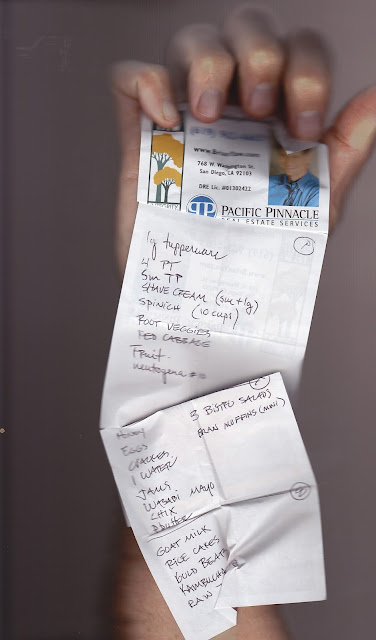 768 W. Washington St,
San Diego, LA 92103
DRE Lic. #01302422
PACIFIC PINNACLE
REAL ESTATE SERVICES
A
lg tupperware
4 PT
Sm TP
SHAVE CREAM (sm + lg)
SPINICH (10 CUPS)
ROOT VEGGIES
RED CABBAGE
Fruit.
neutogena
3 BISTRO SALADS
BRAN MUFFINS (MINI)
HONEY
EGGS
CRACKERS
1 WATER
JAMS
WASABI MAYO
CHIX
GOAT MILK
RICE CAKES
GOLD BEATS
KAMBUCHA
RAW